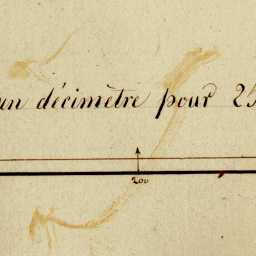 un décimètre pour 25
200